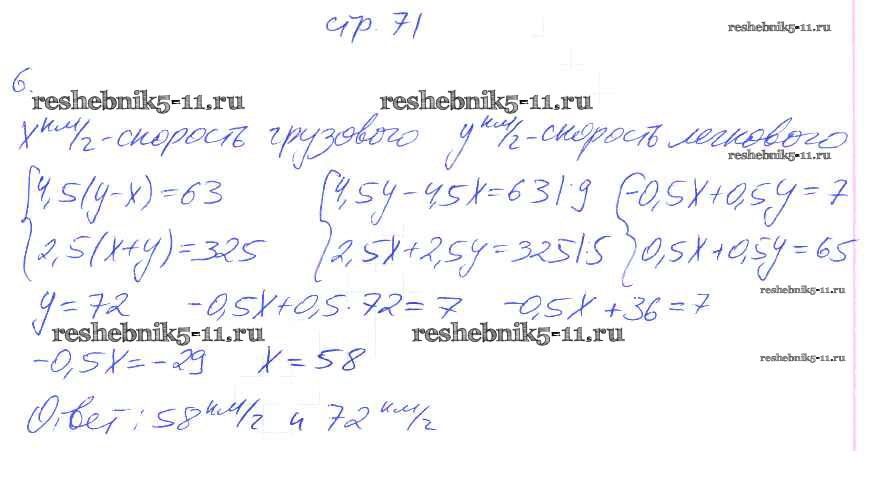 стр. 71
reshebnik5-11.ru
6.
reshebnik5-11.ru reshebnik5-11.ru
x км/г - скорость грузового y км/г - скорость легкового
reshebnik5-11.ru
{4,5(y-x)=63 {4,5y-4,5x=63|:9 {-0,5x+0,5y=7
{2,5(x+y)=325 {2,5x+2,5y=325|:5 {0,5x+0,5y=65
reshebnik5-11.ru
y=72 -0,5x+0,5·72=7 -0,5x+36=7
reshebnik5-11.ru reshebnik5-11.ru
-0,5x=-29 x=58
reshebnik5-11.ru
Ответ: 58 км/г и 72 км/г